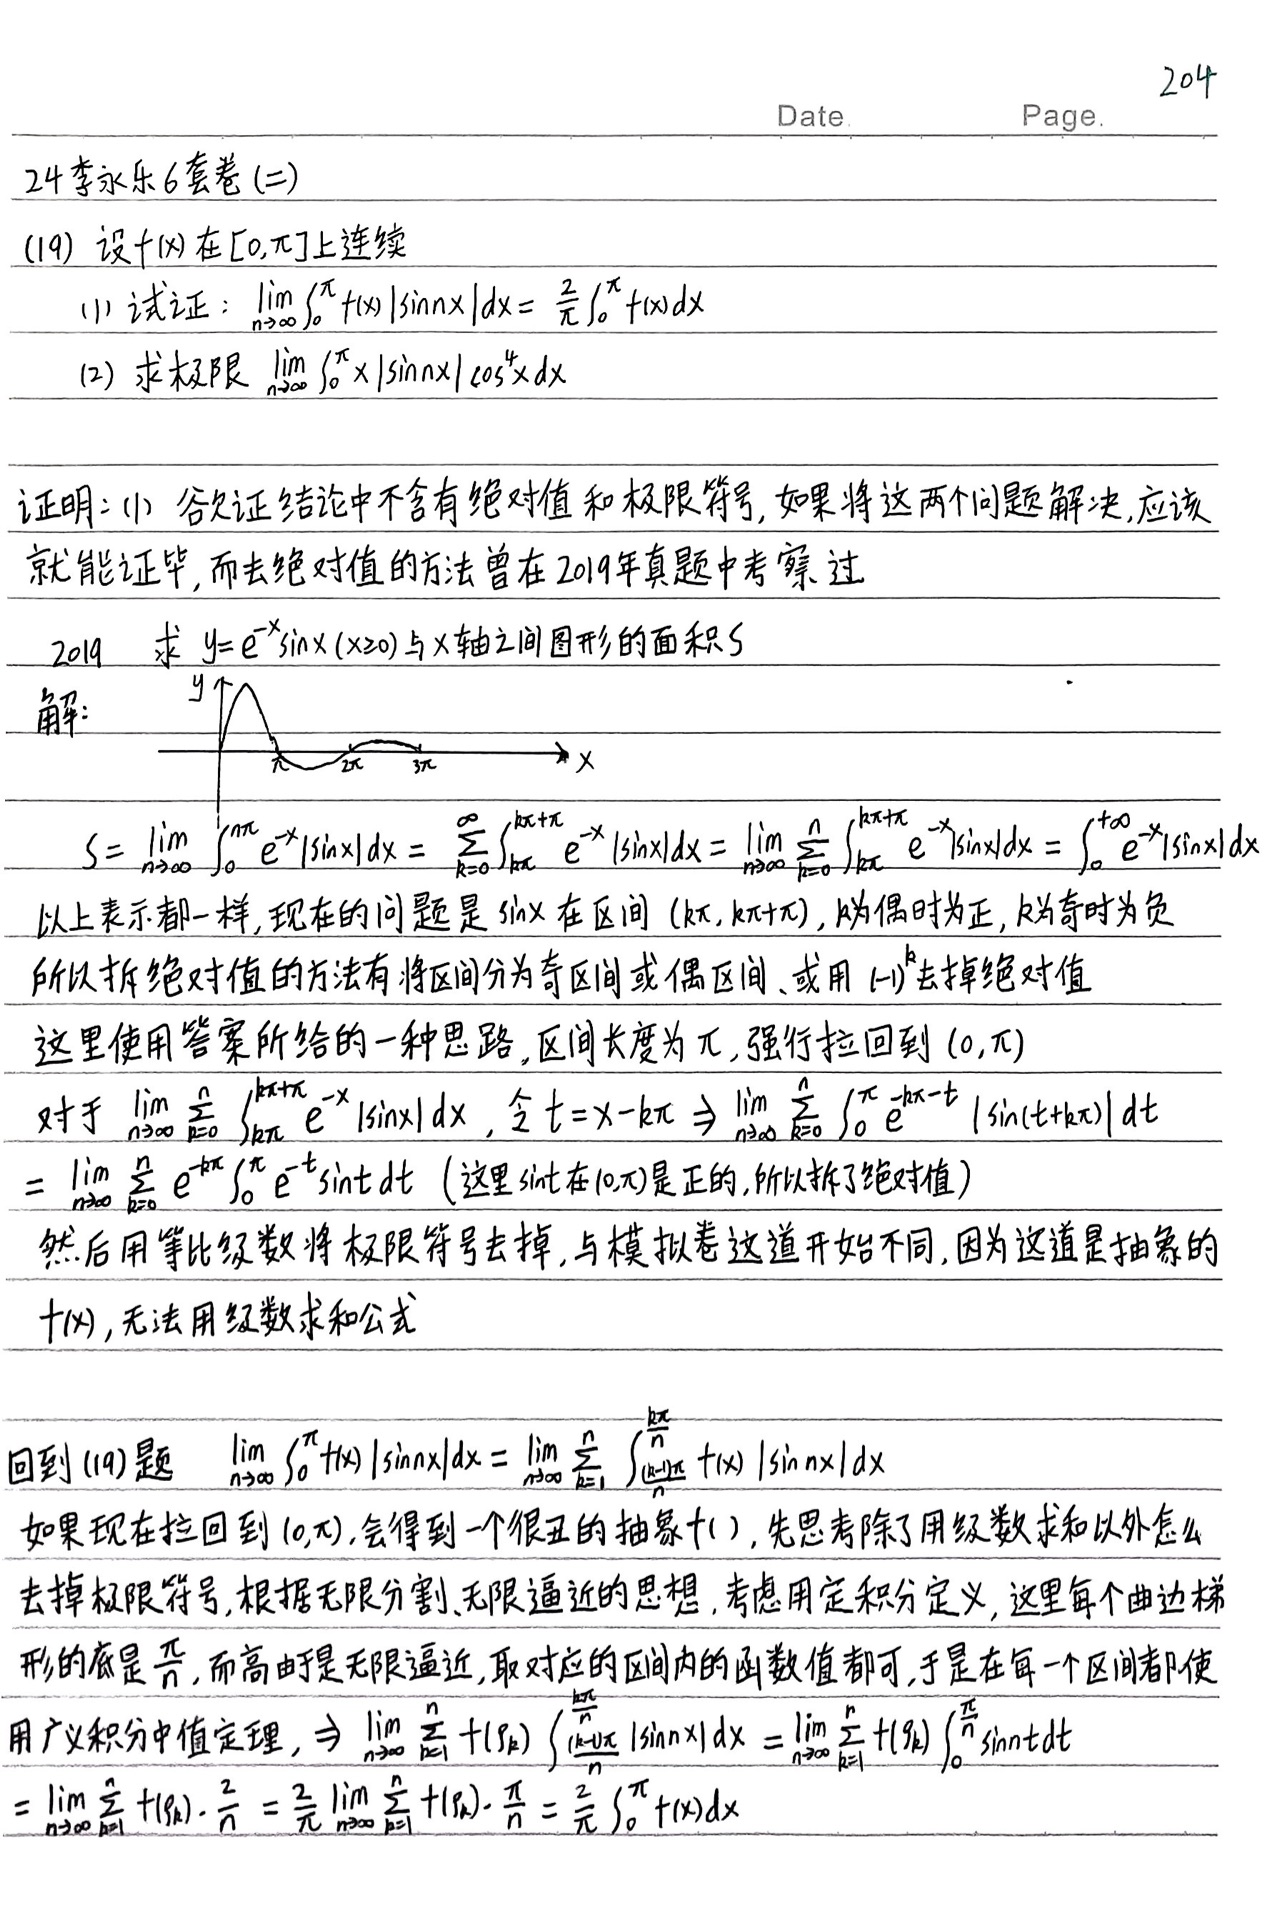 204
Date. Page.
24李永乐6套卷(二)
(19) 设f(x)在[0,π]上连续
(1) 试证: lim_{n→∞} ∫_0^π f(x)|sinnx|dx = 2/π ∫_0^π f(x)dx
(2) 求极限 lim_{n→∞} ∫_0^π x|sinnx|cos⁴xdx
证明:(1) 欲证结论中不含有绝对值和极限符号,如果将这两个问题解决,应该
就能证毕,而去绝对值的方法曾在2019年真题中考察过
2019 求 y=e^{-x}sinx(x≥0)与x轴之间图形的面积S
解:
y
π 2π 3π x
S = lim_{n→∞} ∫_0^{nπ} e^{-x}|sinx|dx = ∑_{k=0}^∞ ∫_{kπ}^{kπ+π} e^{-x}|sinx|dx = lim_{n→∞} ∑_{k=0}^n ∫_{kπ}^{kπ+π} e^{-x}|sinx|dx = ∫_0^{+∞} e^{-x}|sinx|dx
以上表示都一样,现在的问题是sinx在区间(kπ,kπ+π),k为偶时为正,k为奇时为负
所以拆绝对值的方法有将区间分为奇区间或偶区间、或用(-1)^k去掉绝对值
这里使用答案所给的一种思路,区间长度为π,强行拉回到(0,π)
对于 lim_{n→∞} ∑_{k=0}^n ∫_{kπ}^{kπ+π} e^{-x}|sinx|dx, 令t=x-kπ ⇒ lim_{n→∞} ∑_{k=0}^n ∫_0^π e^{-kπ-t}|sin(t+kπ)|dt
= lim_{n→∞} ∑_{k=0}^n e^{-kπ} ∫_0^π e^{-t}sintdt (这里sint在(0,π)是正的,所以拆了绝对值)
然后用等比级数将极限符号去掉,与模拟卷这道开始不同,因为这道是抽象的
f(x),无法用级数求和公式
回到(19)题 lim_{n→∞} ∫_0^π f(x)|sinnx|dx = lim_{n→∞} ∑_{k=1}^n ∫_{(k-1)π/n}^{kπ/n} f(x)|sinnx|dx
如果现在拉回到(0,π),会得到一个很丑的抽象f( ),先思考除了用级数求和以外怎么
去掉极限符号,根据无限分割、无限逼近的思想,考虑用定积分定义,这里每个曲边梯
形的底是π/n,而高由于是无限逼近,取对应的区间内的函数值都可,于是在每一个区间都使
用广义积分中值定理, ⇒ lim_{n→∞} ∑_{k=1}^n f(ξ_k) ∫_{(k-1)π/n}^{kπ/n} |sinnx|dx = lim_{n→∞} ∑_{k=1}^n f(ξ_k) ∫_0^{π/n} sinntdt
= lim_{n→∞} ∑_{k=1}^n f(ξ_k)·2/n = 2/π lim_{n→∞} ∑_{k=1}^n f(ξ_k)·π/n = 2/π ∫_0^π f(x)dx